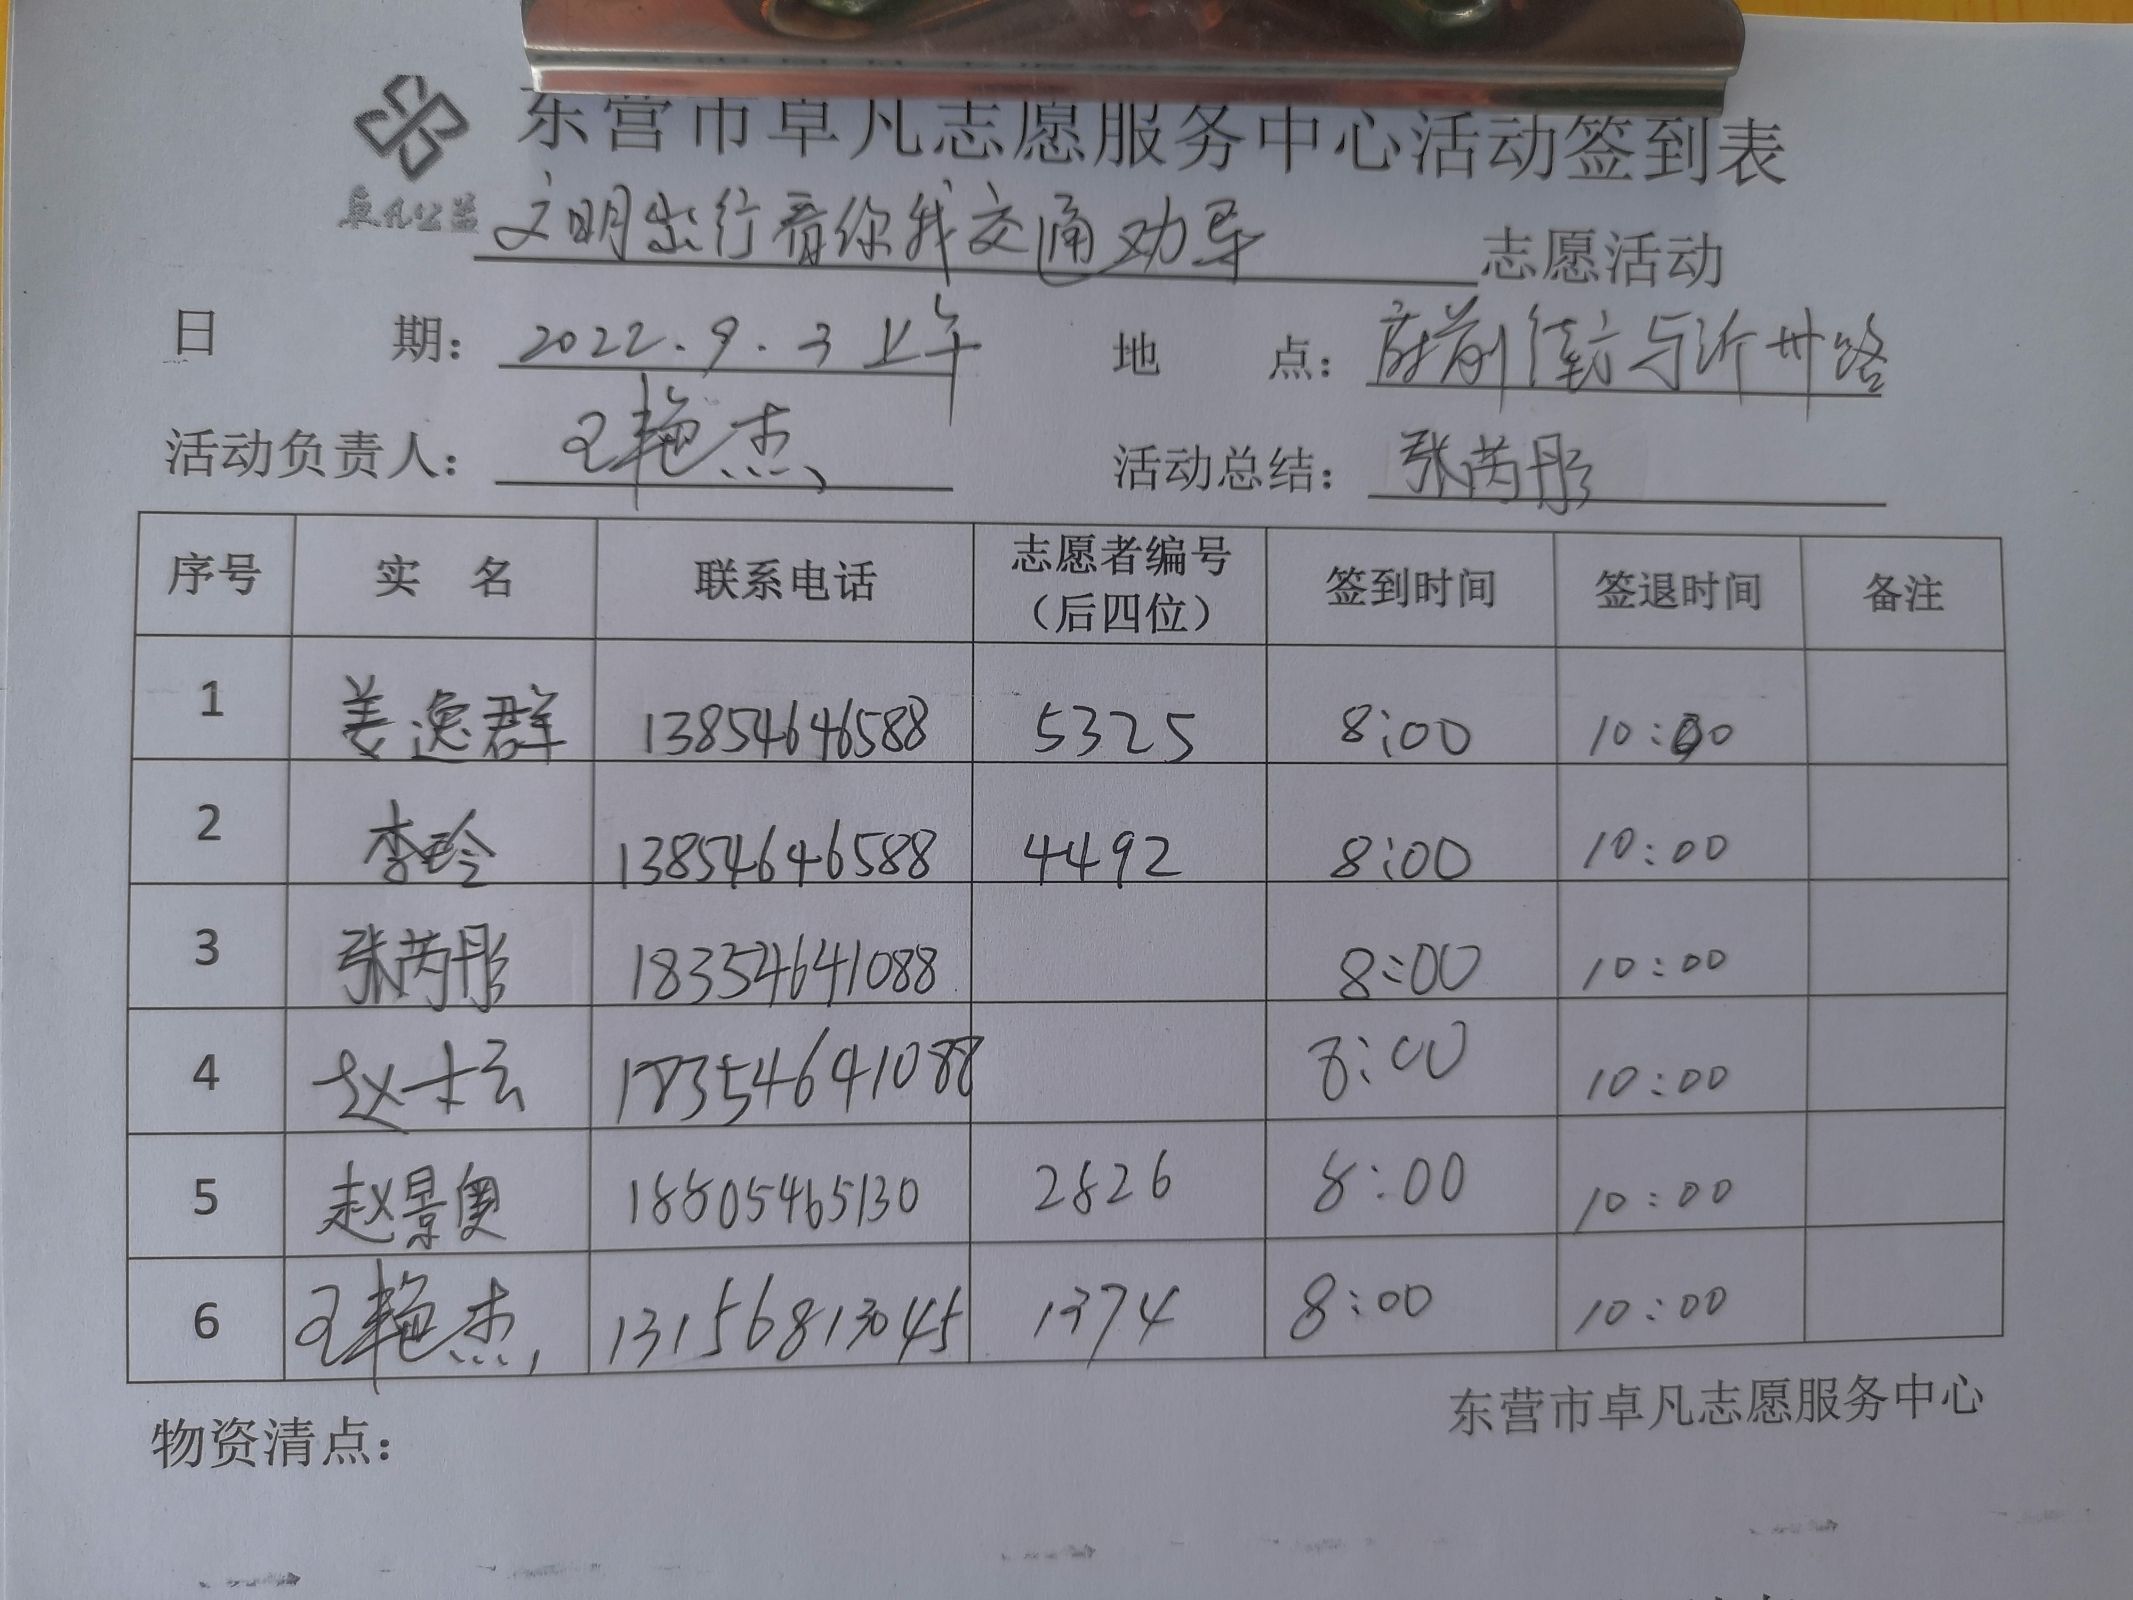 东营市卓凡志愿服务中心活动签到表
卓凡公益
文明出行看你我交通劝导 志愿活动
日 期：2022.9.3上午 地 点：府前街与沂州路
活动负责人：王艳杰 活动总结：张芮彤
序号 实 名 联系电话 志愿者编号（后四位） 签到时间 签退时间 备注
1 姜逸群 13854646588 5325 8:00 10:00
2 李玲 13854646588 4492 8:00 10:00
3 张芮彤 18354641088 8:00 10:00
4 赵士云 18354641088 8:00 10:00
5 赵景 18805465130 2826 8:00 10:00
6 王艳杰 13156813045 1374 8:00 10:00
东营市卓凡志愿服务中心
物资清点：